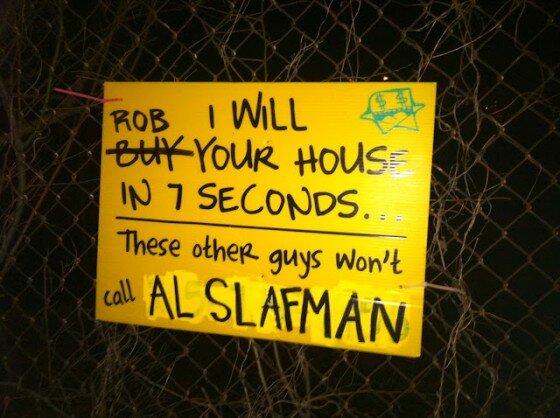 ROB I WILL
BUY YOUR HOUSE
IN 7 SECONDS...
These other guys won't
call AL SLAFMAN